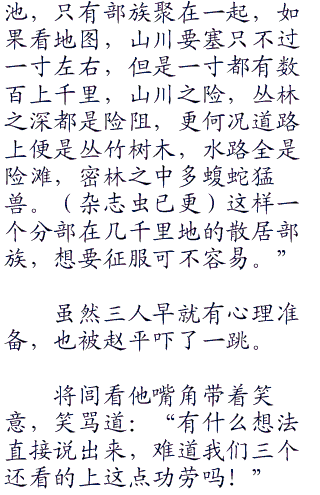 池，只有部族聚在一起，如
果看地图，山川要塞只不过
一寸左右，但是一寸都有数
百上千里，山川之险，丛林
之深都是险阻，更何况道路
上便是丛竹树木，水路全是
险滩，密林之中多蝮蛇猛
兽。（杂志虫已更）这样一
个分部在几千里地的散居部
族，想要征服可不容易。”
虽然三人早就有心理准
备，也被赵平吓了一跳。
将闾看他嘴角带着笑
意，笑骂道：“有什么想法
直接说出来，难道我们三个
还看的上这点功劳吗！”